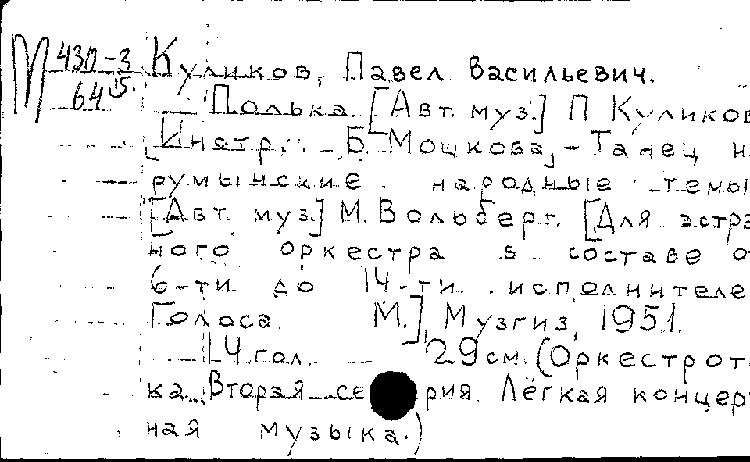 М 430-3
64 5.
Куликов, Павел Васильевич.
Полька. [Авт. муз.] П Куликов
[Инстр. Б. Моцкова, - Танец н
румынские народные темы
[Авт. муз.] М. Вольберг. [Для эстра
ного оркестра в составе о
6-ти до 14-ти исполнителе
Голоса. М.], Музгиз, 1951.
14 гол. 29 см. (Оркестрот
ка. Вторая се рия. Лёгкая концер
ная музыка.)